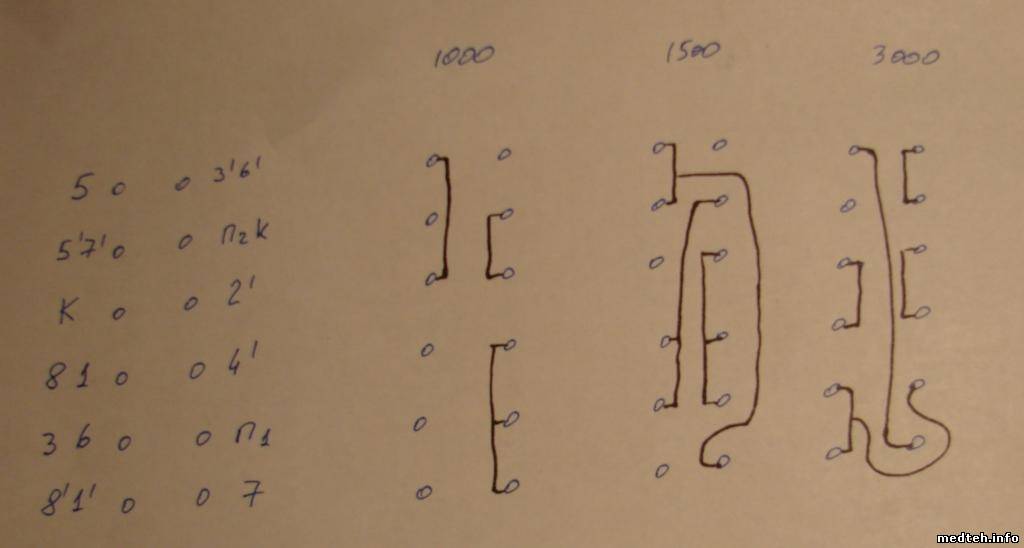 1000 1500 3000
5 3'6'
5'7' П2К
К 2'
81 4'
36 П1
8'1' 7
medteh.info